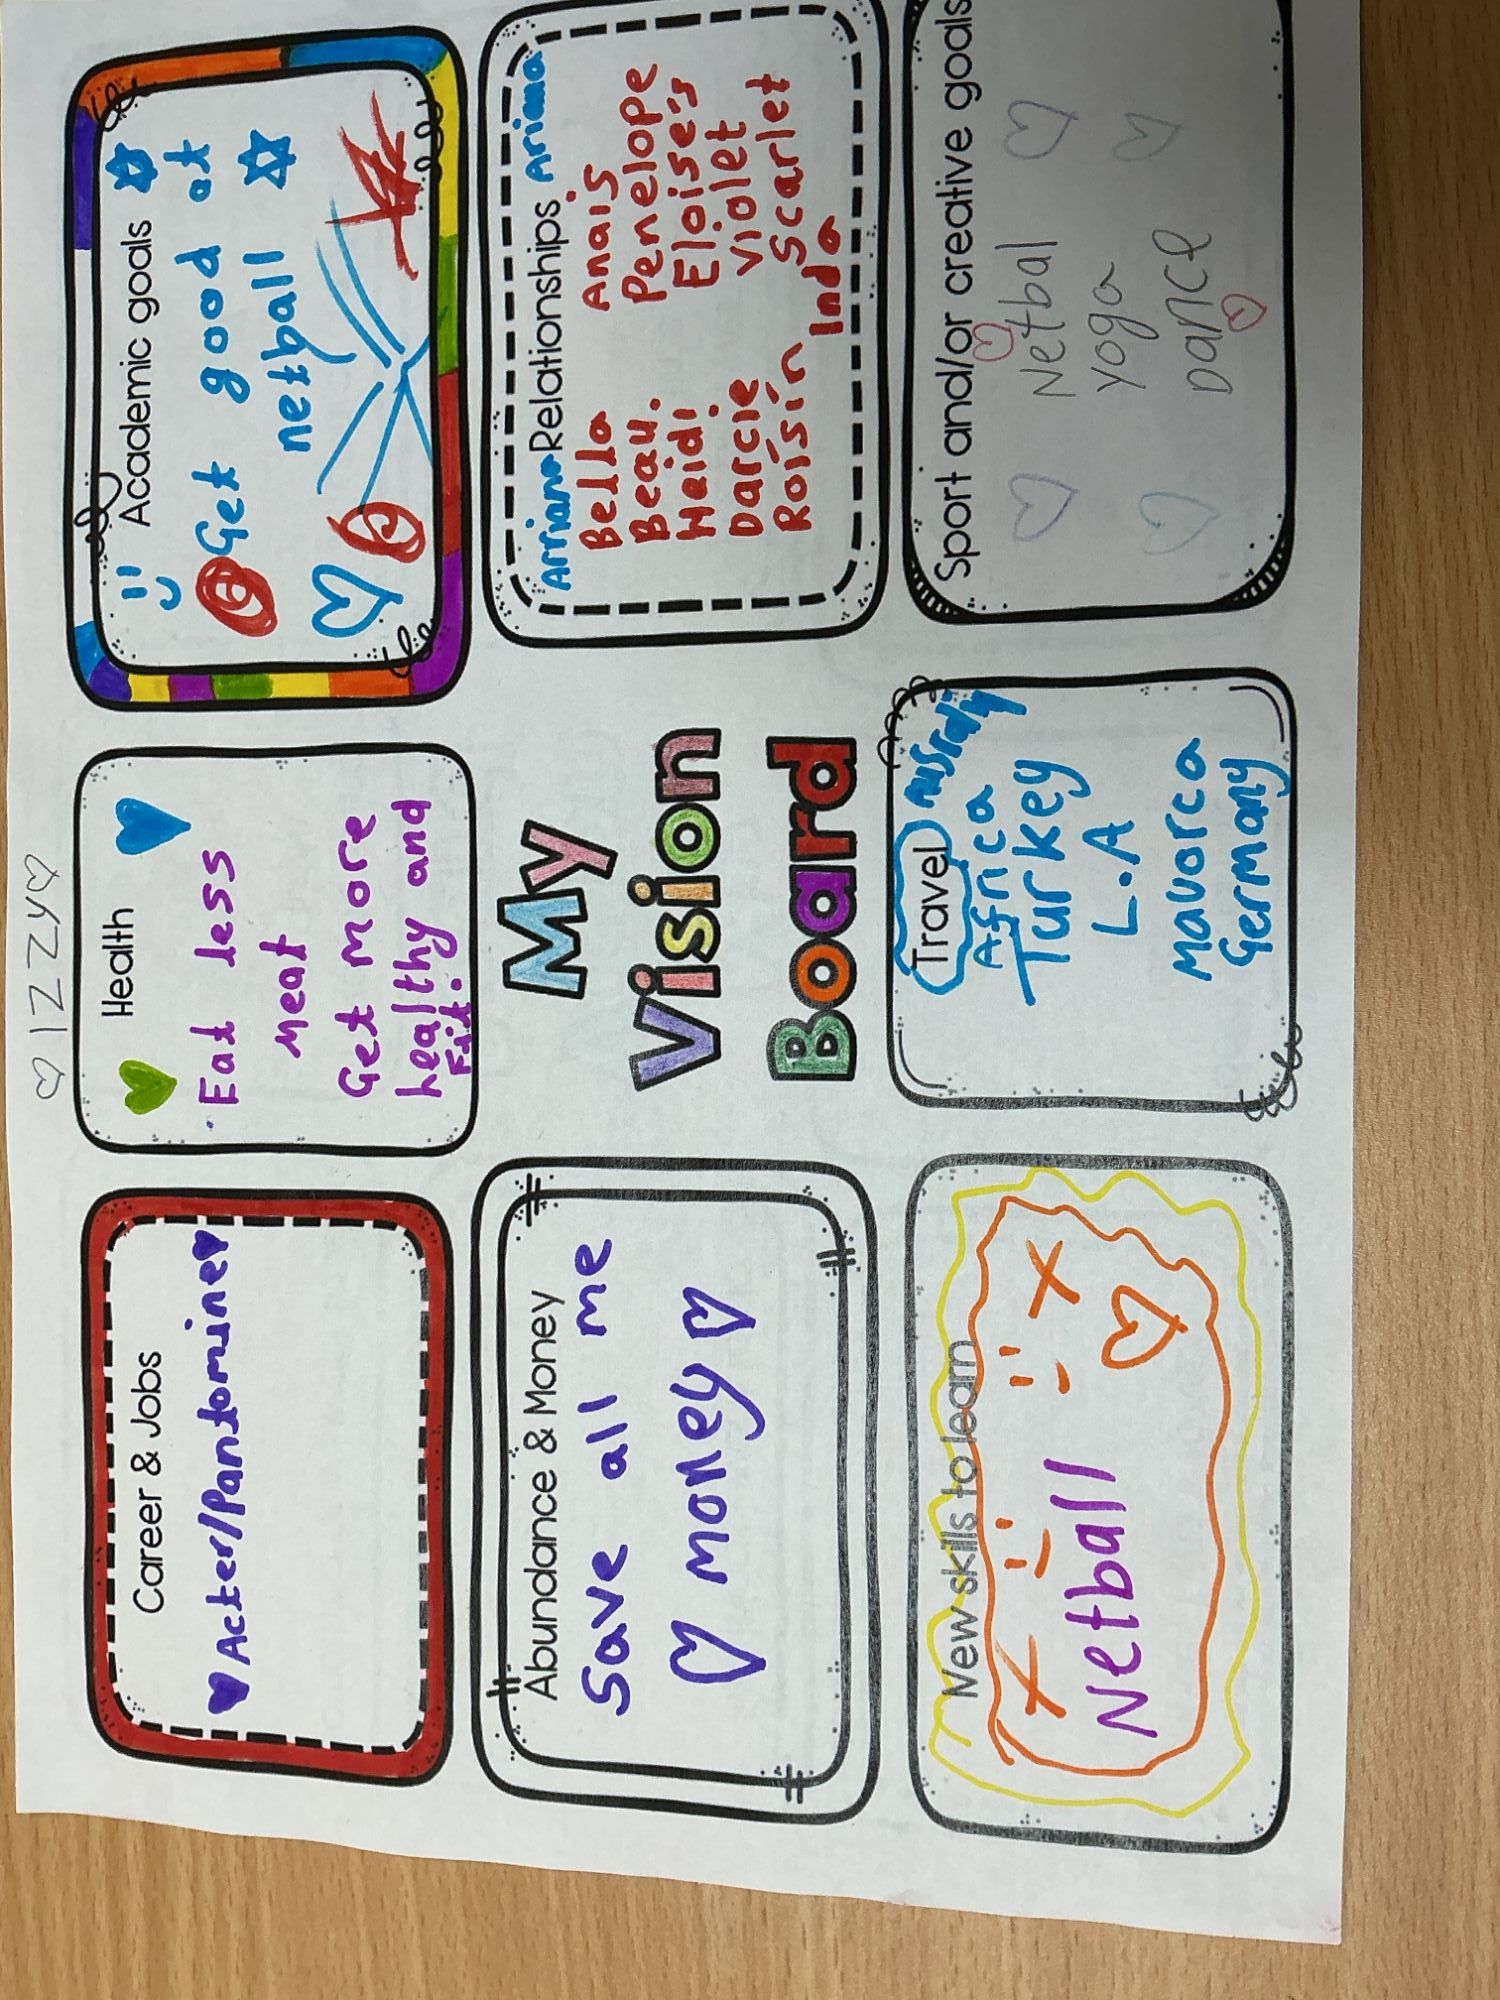 IZZY
Career & Jobs
Acter/Pantominer
Health
Eat less
meat
Get more
healthy and
Fit.
Academic goals
Get good at
netball
Abundance & Money
Save all me
money
My
Vision
Board
Arriana Relationships Ariana
Bella Anais
Beau. Penelope
Heidi Eloise's
Darcie Violet
Roisin Scarlet
Inda
New skills to learn
Netball
Travel
Africa
Turkey
L.A
Mavorca
Germany
Sport and/or creative goals
Netbal
yoga
Dance